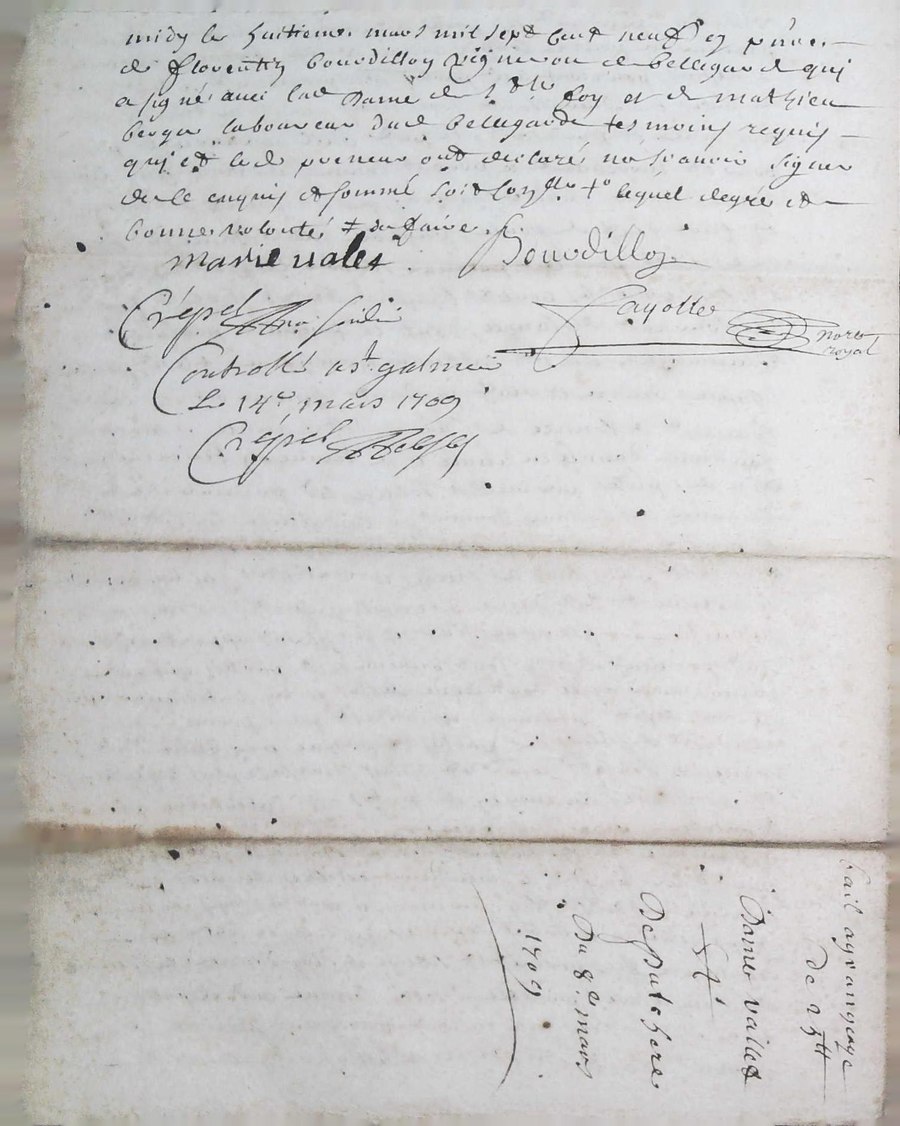 midy le huitieme mars mil sept cent neuf en pnce
de florentin bourdillon vigneron de bellegarde qui
a signé avec lad dame de foy et de mathieu
berger laboureur dud bellegarde tesmoins requis
qui et led preneur ont declaré ne scavoir signer
de ce enquis et sommé soit lequel degré et
bonne volonté + du faire
marie valet
Bourdillon
Crépet
fayolle
nore
royal
Controllé a st galmier
Le 14e mars 1709
Crépet
bail ayrangeage
de
Dame vallet
Et
De
Du 8e mars
1709